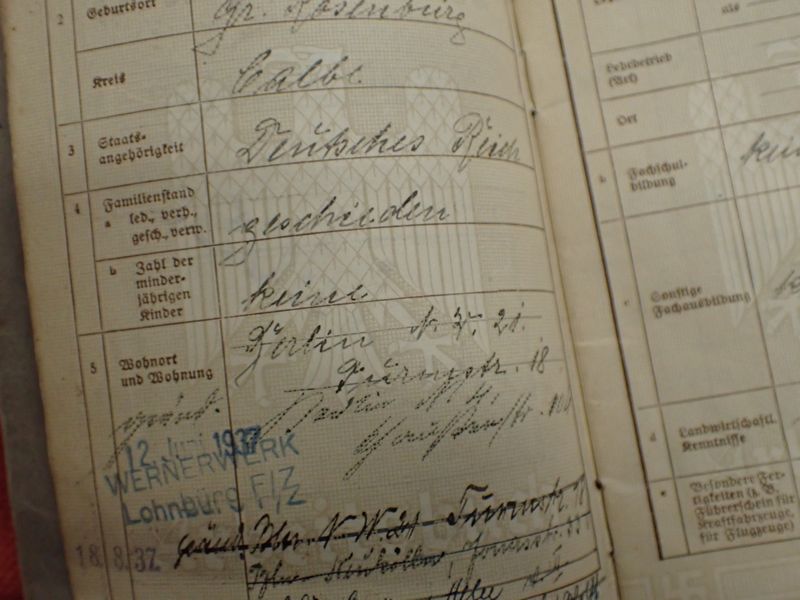 2 Geburtsort Gr. Rosenburg
Kreis Calbe
3 Staats-
angehörigkeit Deutsches Reich
4 Familienstand
a led., verh.,
gesch., verw. geschieden
b Zahl der
minder-
jährigen
Kinder keine
5 Wohnort
und Wohnung Berlin N.W. 21.
Turmstr. 18
Berlin N. 4,
12. Juni 1937
WERNERWERK
Lohnbüro F/Z
18.8.37 geänd. Bln. N.W. 21 Turmstr. 18
Bln. Neukölln, Jonasstr.
als
Lehrbetrieb
(Art)
Ort
b Fachschul-
bildung
c Sonstige
Fachausbildung
d Landwirtschaftl.
Kenntnisse
e Besondere Fer-
tigkeiten (z. B.
Führerschein für
Kraftfahrzeuge,
für Flugzeuge)